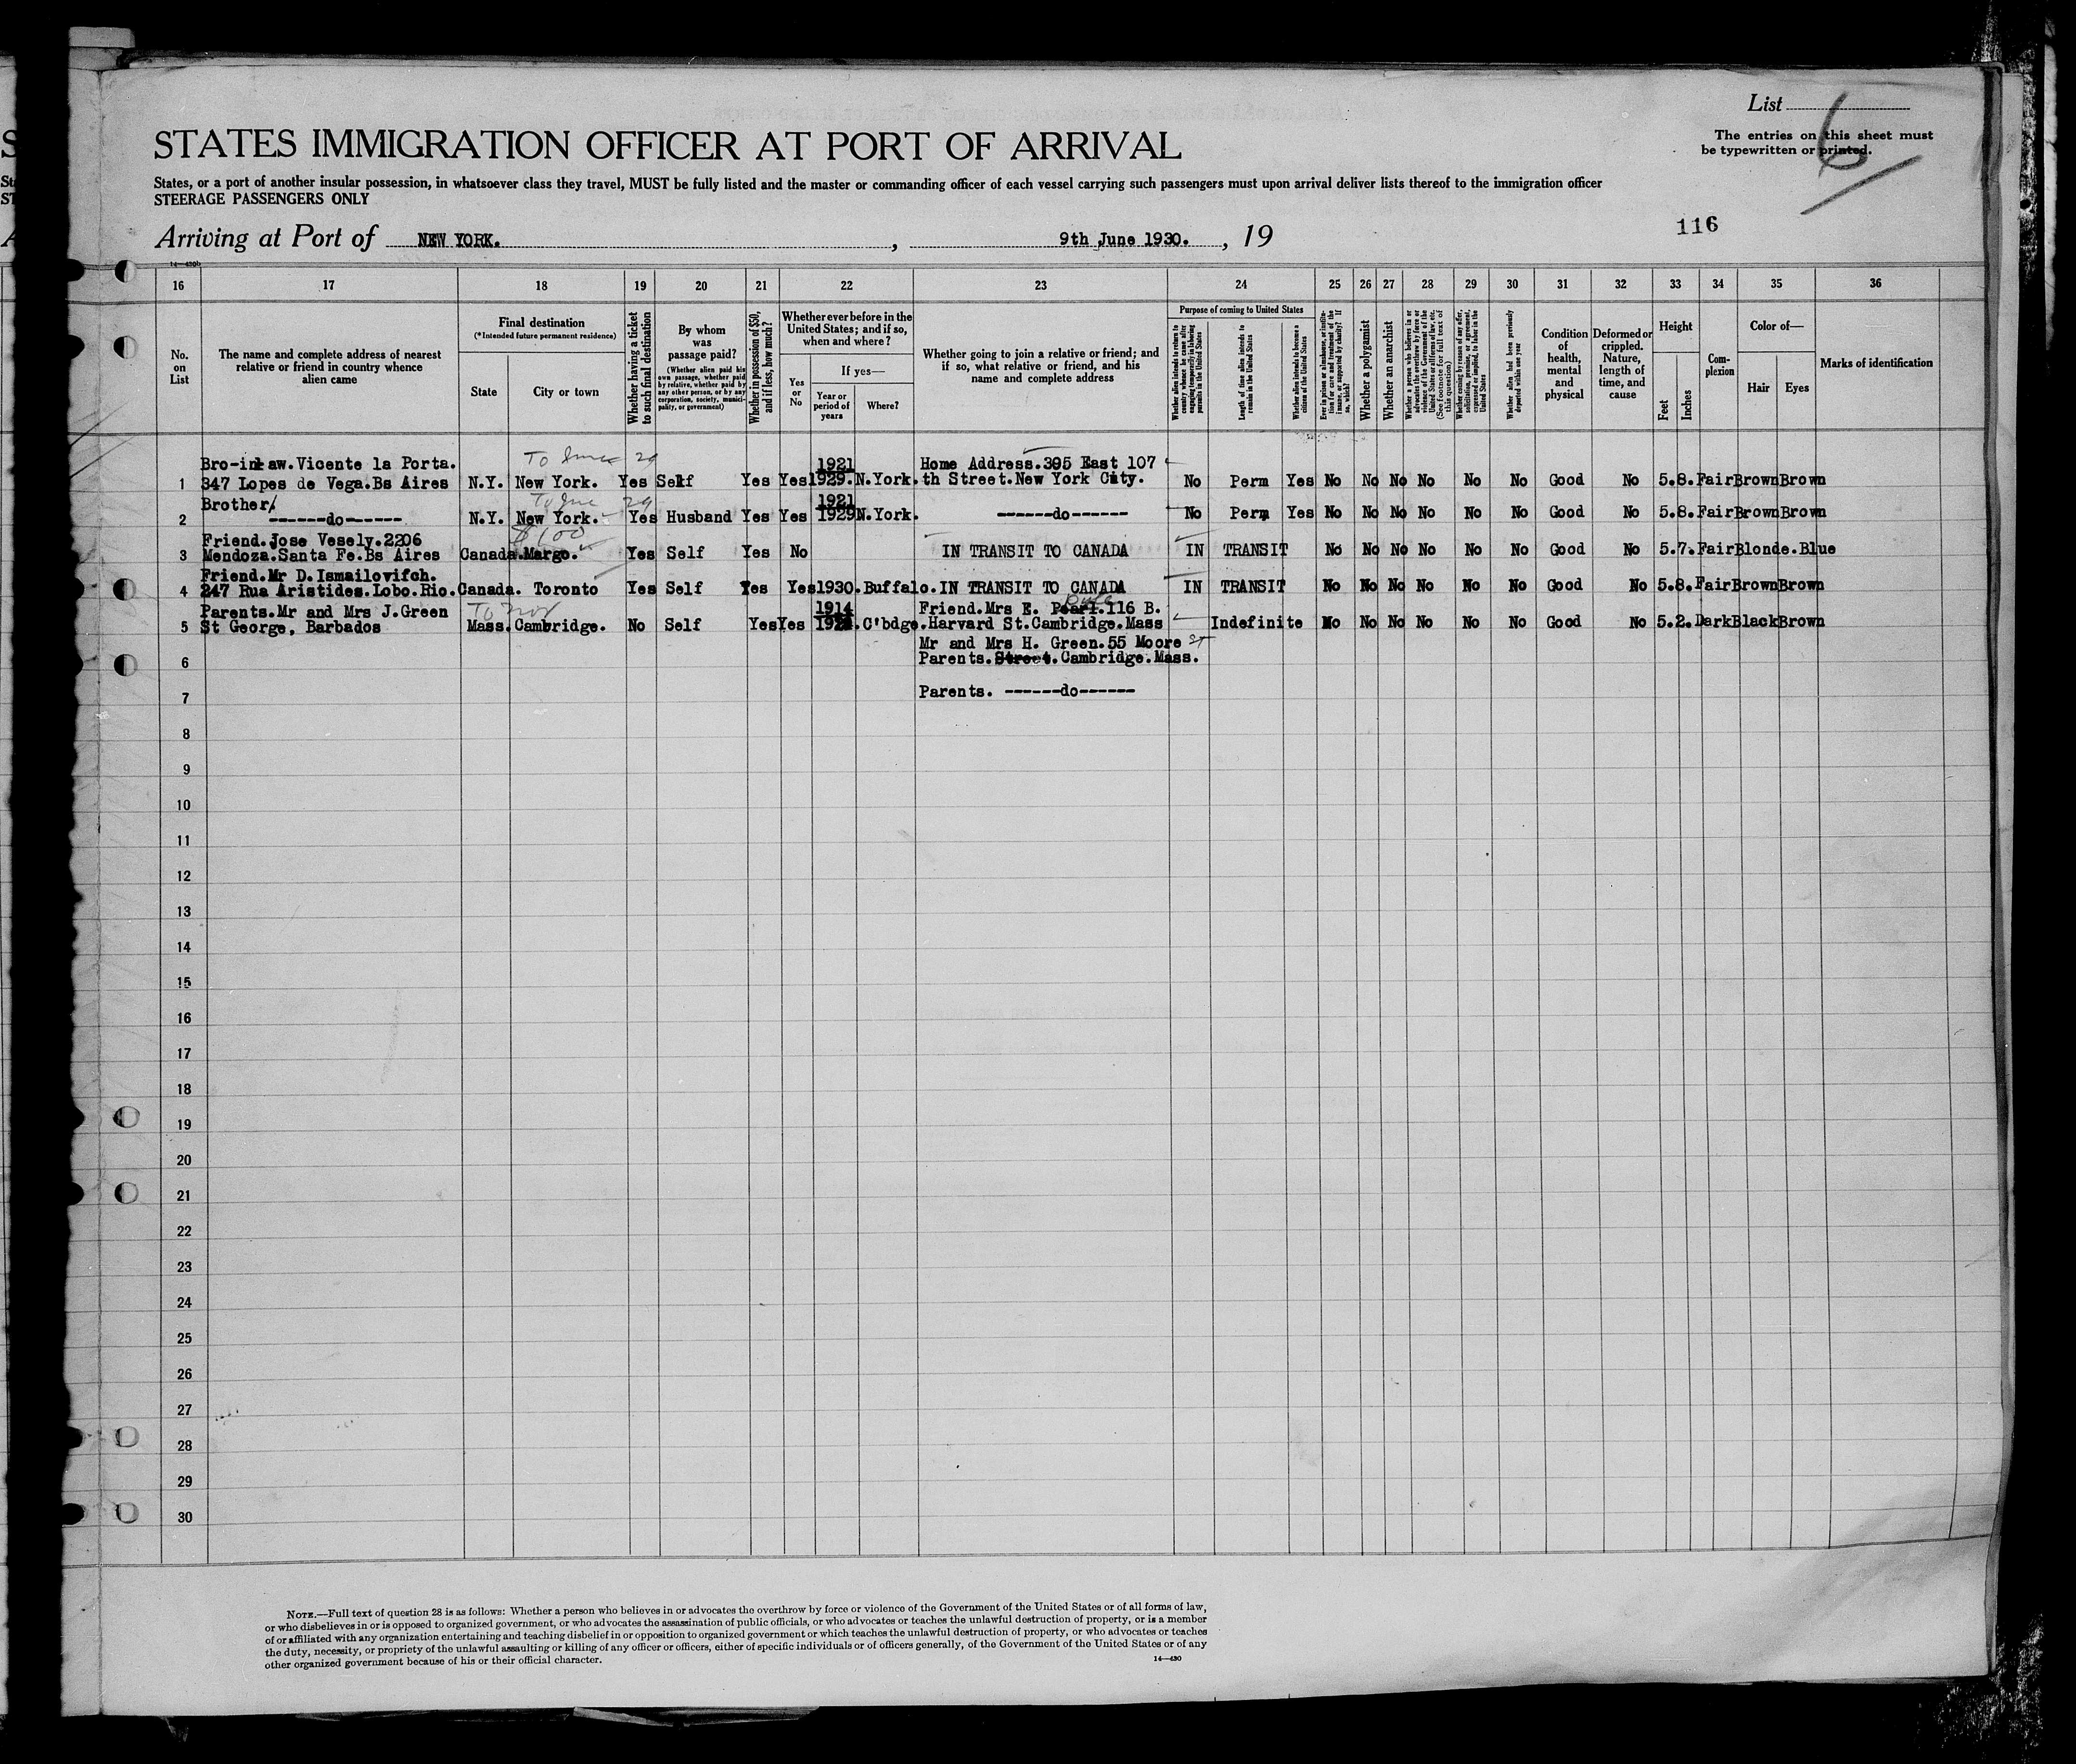 List 6
The entries on this sheet must
be typewritten or printed.
STATES IMMIGRATION OFFICER AT PORT OF ARRIVAL
States, or a port of another insular possession, in whatsoever class they travel, MUST be fully listed and the master or commanding officer of each vessel carrying such passengers must upon arrival deliver lists thereof to the immigration officer
STEERAGE PASSENGERS ONLY
116
Arriving at Port of NEW YORK. , 9th June 1930. , 19
16 17 18 19 20 21 22 23 24 25 26 27 28 29 30 31 32 33 34 35 36
No. on List
The name and complete address of nearest relative or friend in country whence alien came
Final destination
(*Intended future permanent residence)
State
City or town
Whether having a ticket to such final destination
By whom was passage paid?
(Whether alien paid his own passage, whether paid by relative, whether paid by any other person, or by any corporation, society, municipality, or government)
Whether in possession of $50, and if less, how much?
Whether ever before in the United States; and if so, when and where?
Yes or No
If yes—
Year or period of years
Where?
Whether going to join a relative or friend; and if so, what relative or friend, and his name and complete address
Purpose of coming to United States
Whether alien intends to return to country whence he came after engaging temporarily in laboring pursuits in the United States
Length of time alien intends to remain in the United States
Whether alien intends to become a citizen of the United States
Ever in prison or almshouse, or institution for care and treatment of the insane, or supported by charity? If so, which?
Whether a polygamist
Whether an anarchist
Whether a person who believes in or advocates the overthrow by force or violence of the Government of the United States or all forms of law, etc. (See footnote for full text of this question)
Whether coming by reason of any offer, solicitation, promise, or agreement, expressed or implied, to labor in the United States
Whether alien had been previously deported within one year
Condition of health, mental and physical
Deformed or crippled. Nature, length of time, and cause
Height
Feet
Inches
Complexion
Color of—
Hair
Eyes
Marks of identification
Bro-in aw.Vicente la Porta. 1921 Home Address.395 East 107
1 347 Lopes de Vega.Bs Aires N.Y. New York. Yes Self Yes Yes 1929. N.York. th Street.New York City. No Perm Yes No No No No No No Good No 5.8. Fair Brown Brown
Brother 1921
2 ------do------ N.Y. New York. Yes Husband Yes Yes 1929 N.York. ------do------ No Perm Yes No No No No No No Good No 5.8. Fair Brown Brown
Friend.Jose Vesely.2206 $100
3 Mendoza.Santa Fe.Bs Aires Canada.Margo. Yes Self Yes No IN TRANSIT TO CANADA IN TRANSIT No No No No No No Good No 5.7. Fair Blonde. Blue
Friend.Mr D.Ismailovifch.
4 247 Rua Aristides.Lobo.Rio. Canada. Toronto Yes Self Yes Yes 1930. Buffalo. IN TRANSIT TO CANADA IN TRANSIT No No No No No No Good No 5.8. Fair Brown Brown
Parents.Mr and Mrs J.Green 1914 Friend.Mrs E. Pearl.116 B.
5 St George, Barbados Mass. Cambridge. No Self Yes Yes C'bdge. Harvard St.Cambridge.Mass Indefinite No No No No No No Good No 5.2. Dark Black Brown
Mr and Mrs H. Green.55 Moore St
6 Parents.Street.Cambridge.Mass.
7 Parents. ------do------
8
9
10
11
12
13
14
15
16
17
18
19
20
21
22
23
24
25
26
27
28
29
30
NOTE.—Full text of question 28 is as follows: Whether a person who believes in or advocates the overthrow by force or violence of the Government of the United States or of all forms of law,
or who disbelieves in or is opposed to organized government, or who advocates the assassination of public officials, or who advocates or teaches the unlawful destruction of property, or is a member
of or affiliated with any organization entertaining and teaching disbelief in or opposition to organized government or which teaches the unlawful destruction of property, or who advocates or teaches
the duty, necessity, or propriety of the unlawful assaulting or killing of any officer or officers, either of specific individuals or of officers generally, of the Government of the United States or of any
other organized government because of his or their official character.
14—430